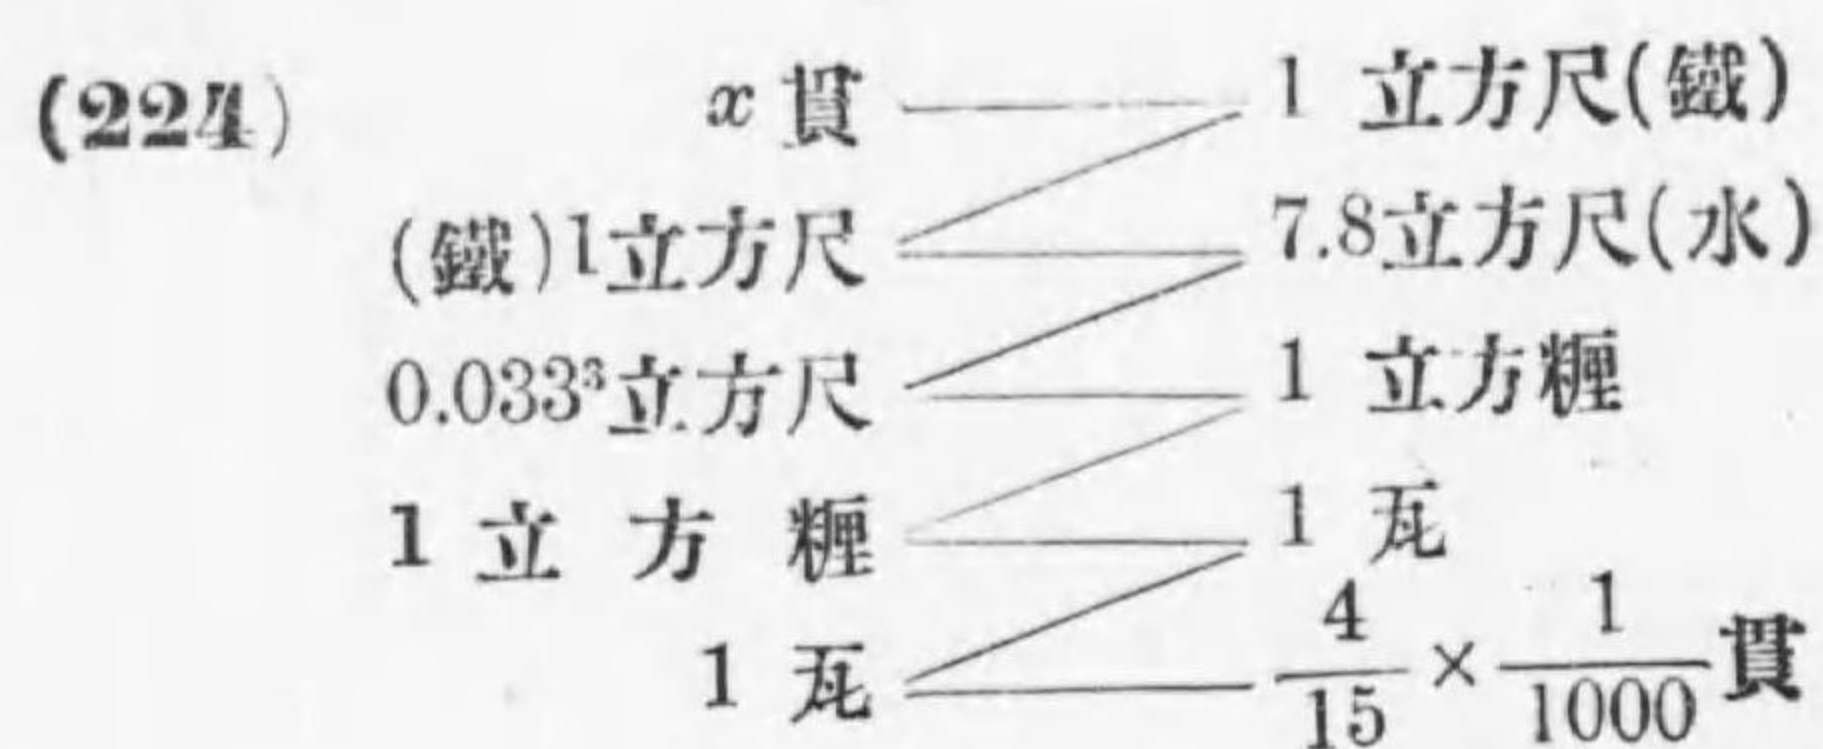 (224) x貫 1 立方尺(鐵)
(鐵)1立方尺 7.8立方尺(水)
0.033³立方尺 1 立方糎
1 立 方 糎 1 瓦
1 瓦 4/15 × 1/1000 貫